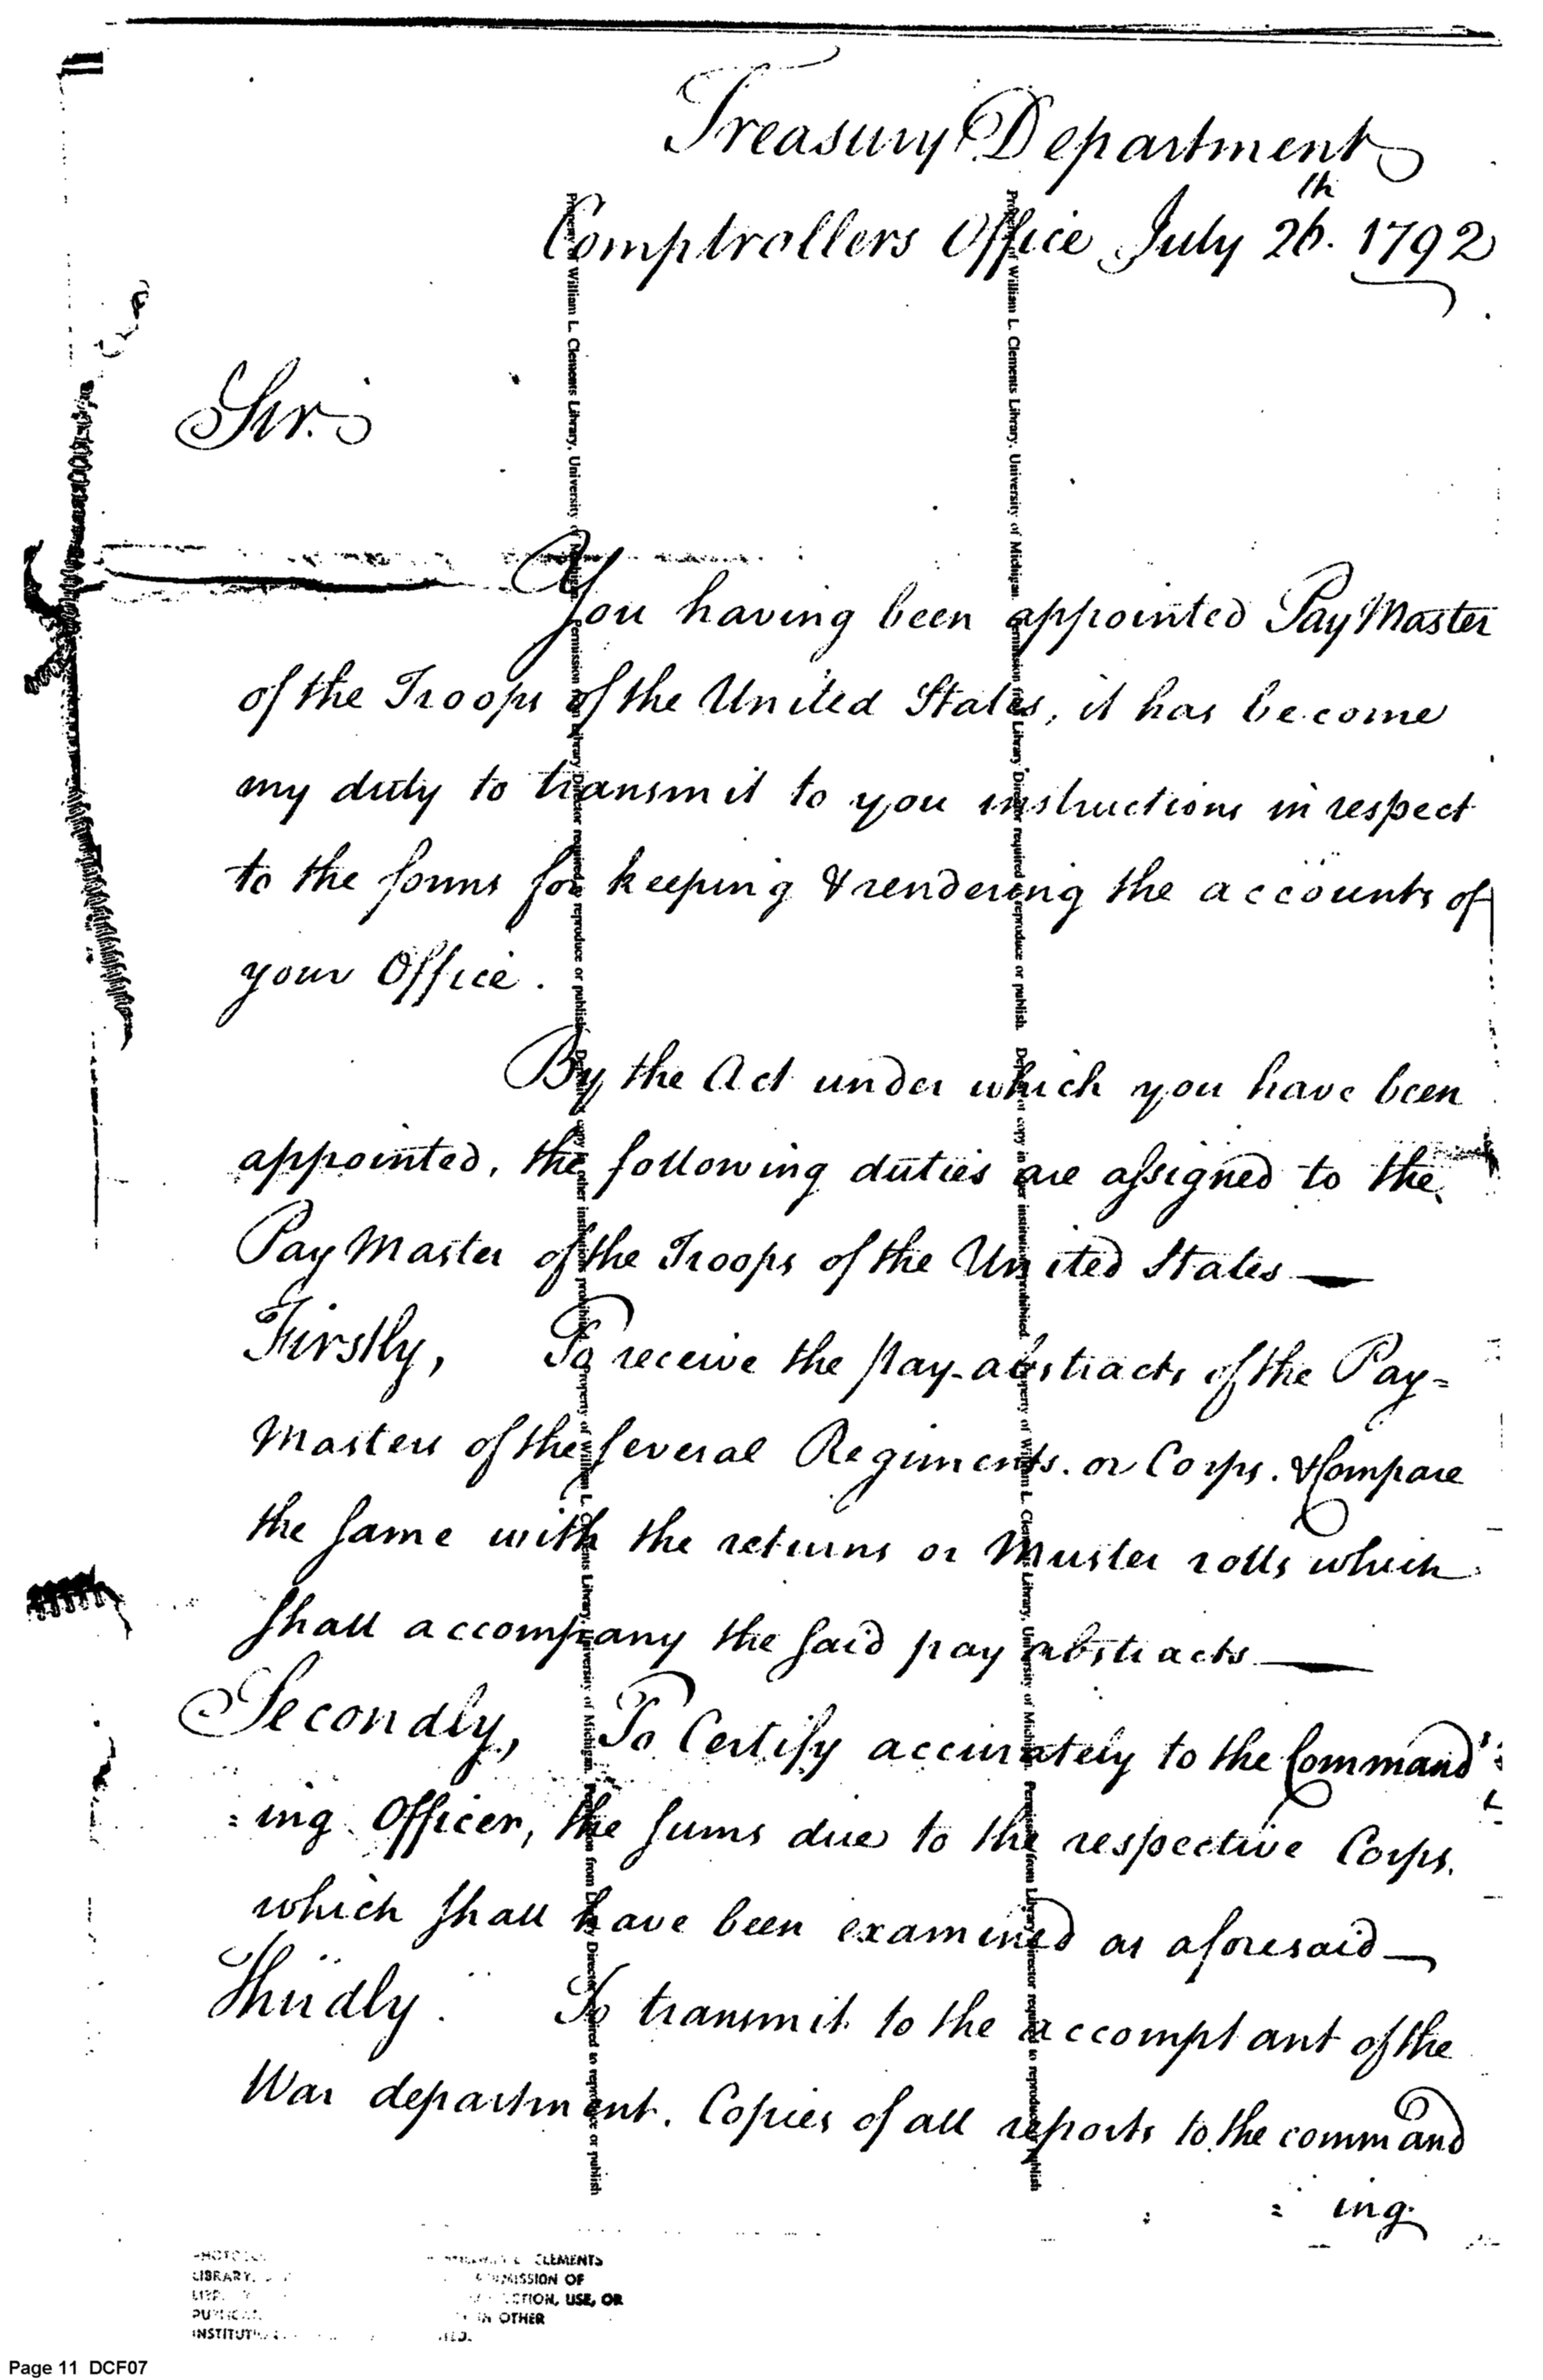 Treasury Department
Comptrollers Office July 26th. 1792
Sir.
You having been appointed Pay Master
of the Troops of the United States, it has become
my duty to transmit to you instructions in respect
to the forms for keeping & rendering the accounts of
your Office.
By the Act under which you have been
appointed, the following duties are assigned to the
Pay Master of the Troops of the United States —
Firstly, To receive the pay-abstracts of the Pay=
Masters of the several Regiments. or Corps. & Compare
the same with the returns or Muster rolls which
shall accompany the said pay abstracts —
Secondly, To Certify accurately to the Command
=ing Officer, the sums due to the respective Corps.
which shall have been examined as aforesaid —
Thirdly. To transmit to the accomptant of the
War department. Copies of all reports to the command
= ing
Property of William L. Clements Library, University of Michigan. Permission from Library Director required to reproduce or publish. Deposit of copy in other institutions prohibited. Property of William L. Clements Library, University of Michigan. Permission from Library Director required to reproduce or publish
Property of William L. Clements Library, University of Michigan. Permission from Library Director required to reproduce or publish. Deposit of copy in other institutions prohibited. Property of William L. Clements Library, University of Michigan. Permission from Library Director required to reproduce or publish
CLEMENTS
LIBRARY
OF
USE, OR
IN OTHER
Page 11 DCF07